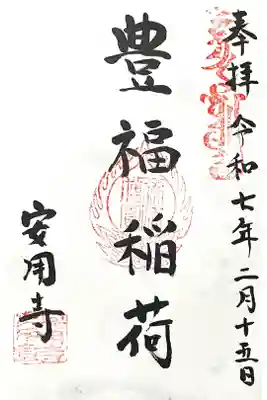 奉拝 令和七年二月十五日
豊福稲荷
安用寺